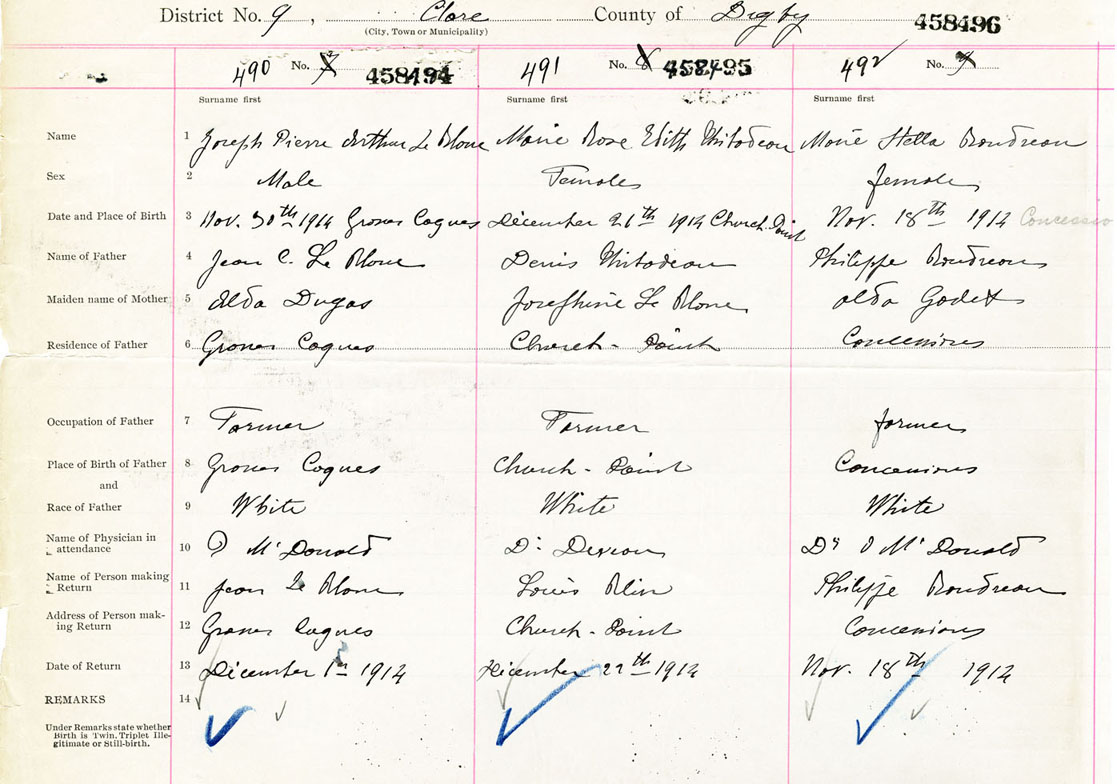 District No. 9, Clare County of Digby 458496
(City, Town or Municipality)
490 No. 7 458494 491 No. 8 458495 492 No. 9
Surname first Surname first Surname first
Name 1 Joseph Pierre Arthur Le Blanc Marie Rose Edith Thibodeau Marie Stella Boudreau
Sex 2 Male Female female
Date and Place of Birth 3 Nov. 30th 1914 Grosses Coques Décember 26th 1914 Church Point Nov. 18th 1914 Concessio
Name of Father 4 Jean C. Le Blanc Denis Thibodeau Philippe Boudreau
Maiden name of Mother 5 Alda Dugas Josephine Le Blanc Alda Godet
Residence of Father 6 Grosses Coques Church-Point Concessions
Occupation of Father 7 Farmer Farmer farmer
Place of Birth of Father 8 Grosses Coques Church-Point Concessions
and
Race of Father 9 White White White
Name of Physician in
attendance 10 McDonald Dr. Dr McDonald
Name of Person making
Return 11 Jean Le Blanc Louis Blin Philippe Boudreau
Address of Person mak-
ing Return 12 Grosses Coques Church-Point Concessions
Date of Return 13 Décember 1914 Décember 27th 1914 Nov. 18th 1914
REMARKS 14
Under Remarks state whether
Birth is Twin, Triplet Ille-
gitimate or Still-birth.